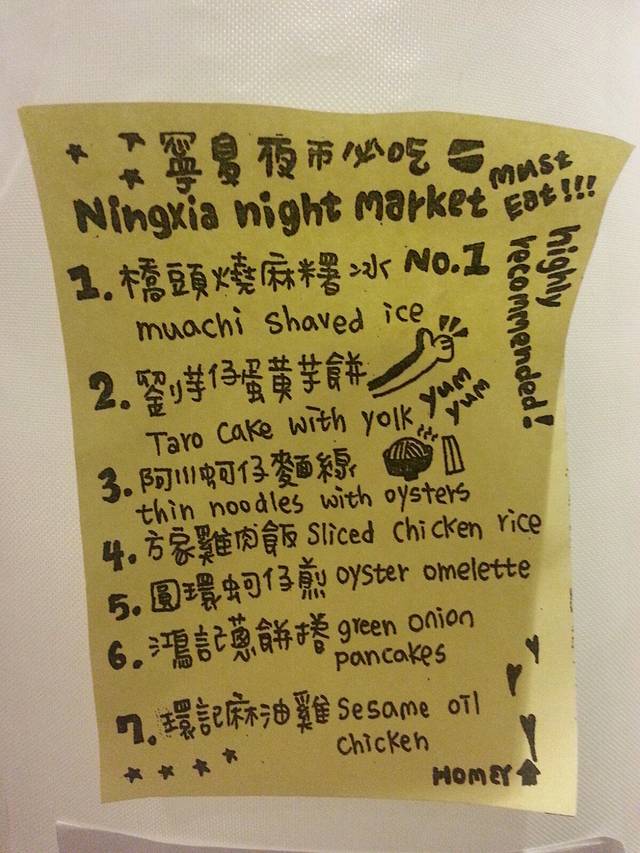 寧夏夜市必吃
Must Eat!!!
Ningxia night market
highly recommended!
1. 橋頭燒麻糬冰 NO.1
muachi shaved ice
2. 劉芋仔蛋黃芋餅
Taro cake with yolk
yum yum
3. 阿川蚵仔麵線
thin noodles with oysters
4. 方家雞肉飯 Sliced chicken rice
5. 圓環蚵仔煎 oyster omelette
6. 鴻記蔥餅捲 green onion
pancakes
7. 環記麻油雞 Sesame oil
chicken
HOMEY